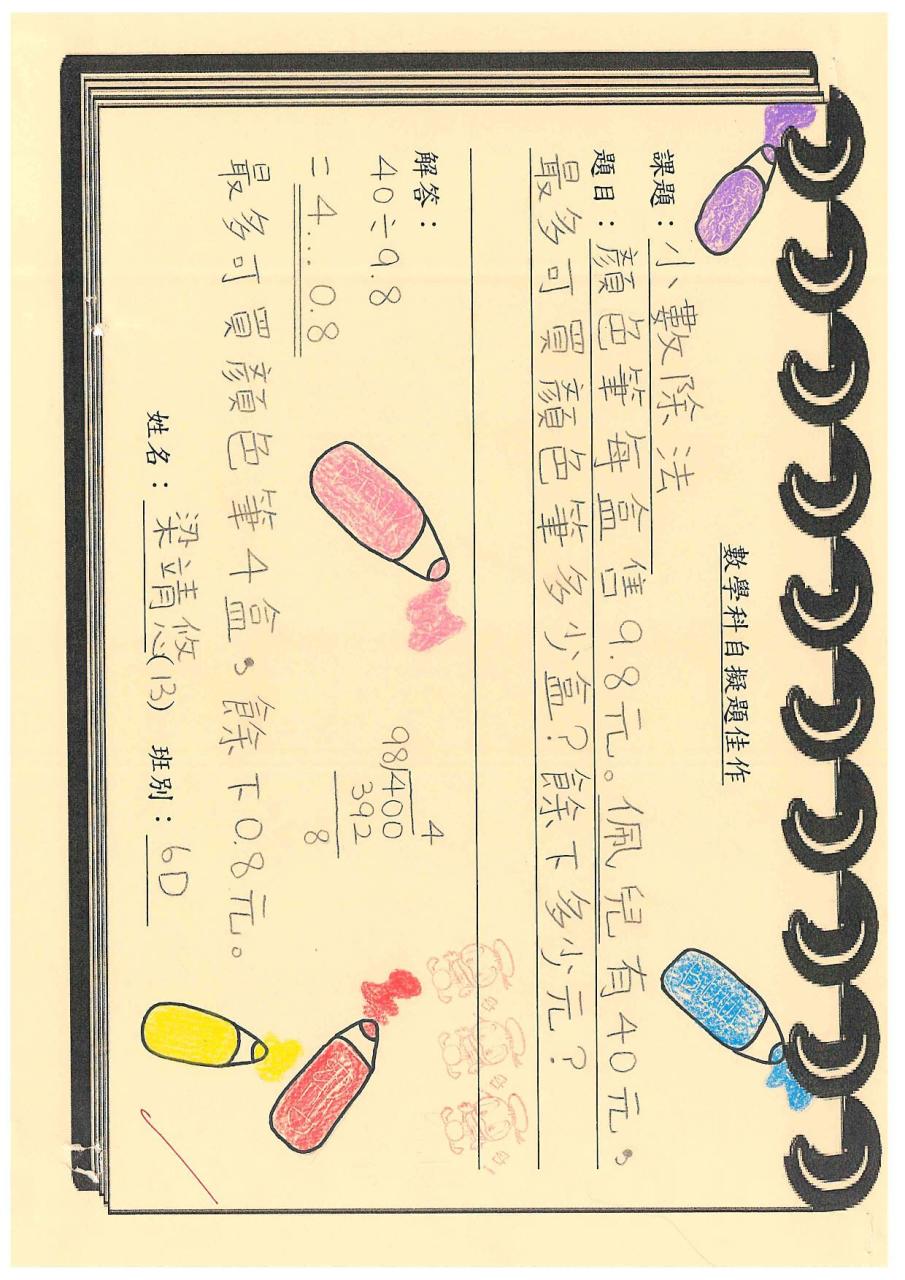 數學科自擬題佳作
課題：小數除法
題目：顏色筆每盒售9.8元。佩兒有40元，
最多可買顏色筆多少盒？餘下多少元？
解答：
40÷9.8
=4...0.8
4
98)400
392
8
最多可買顏色筆4盒，餘下0.8元。
姓名：梁靖悠(13) 班別：6D